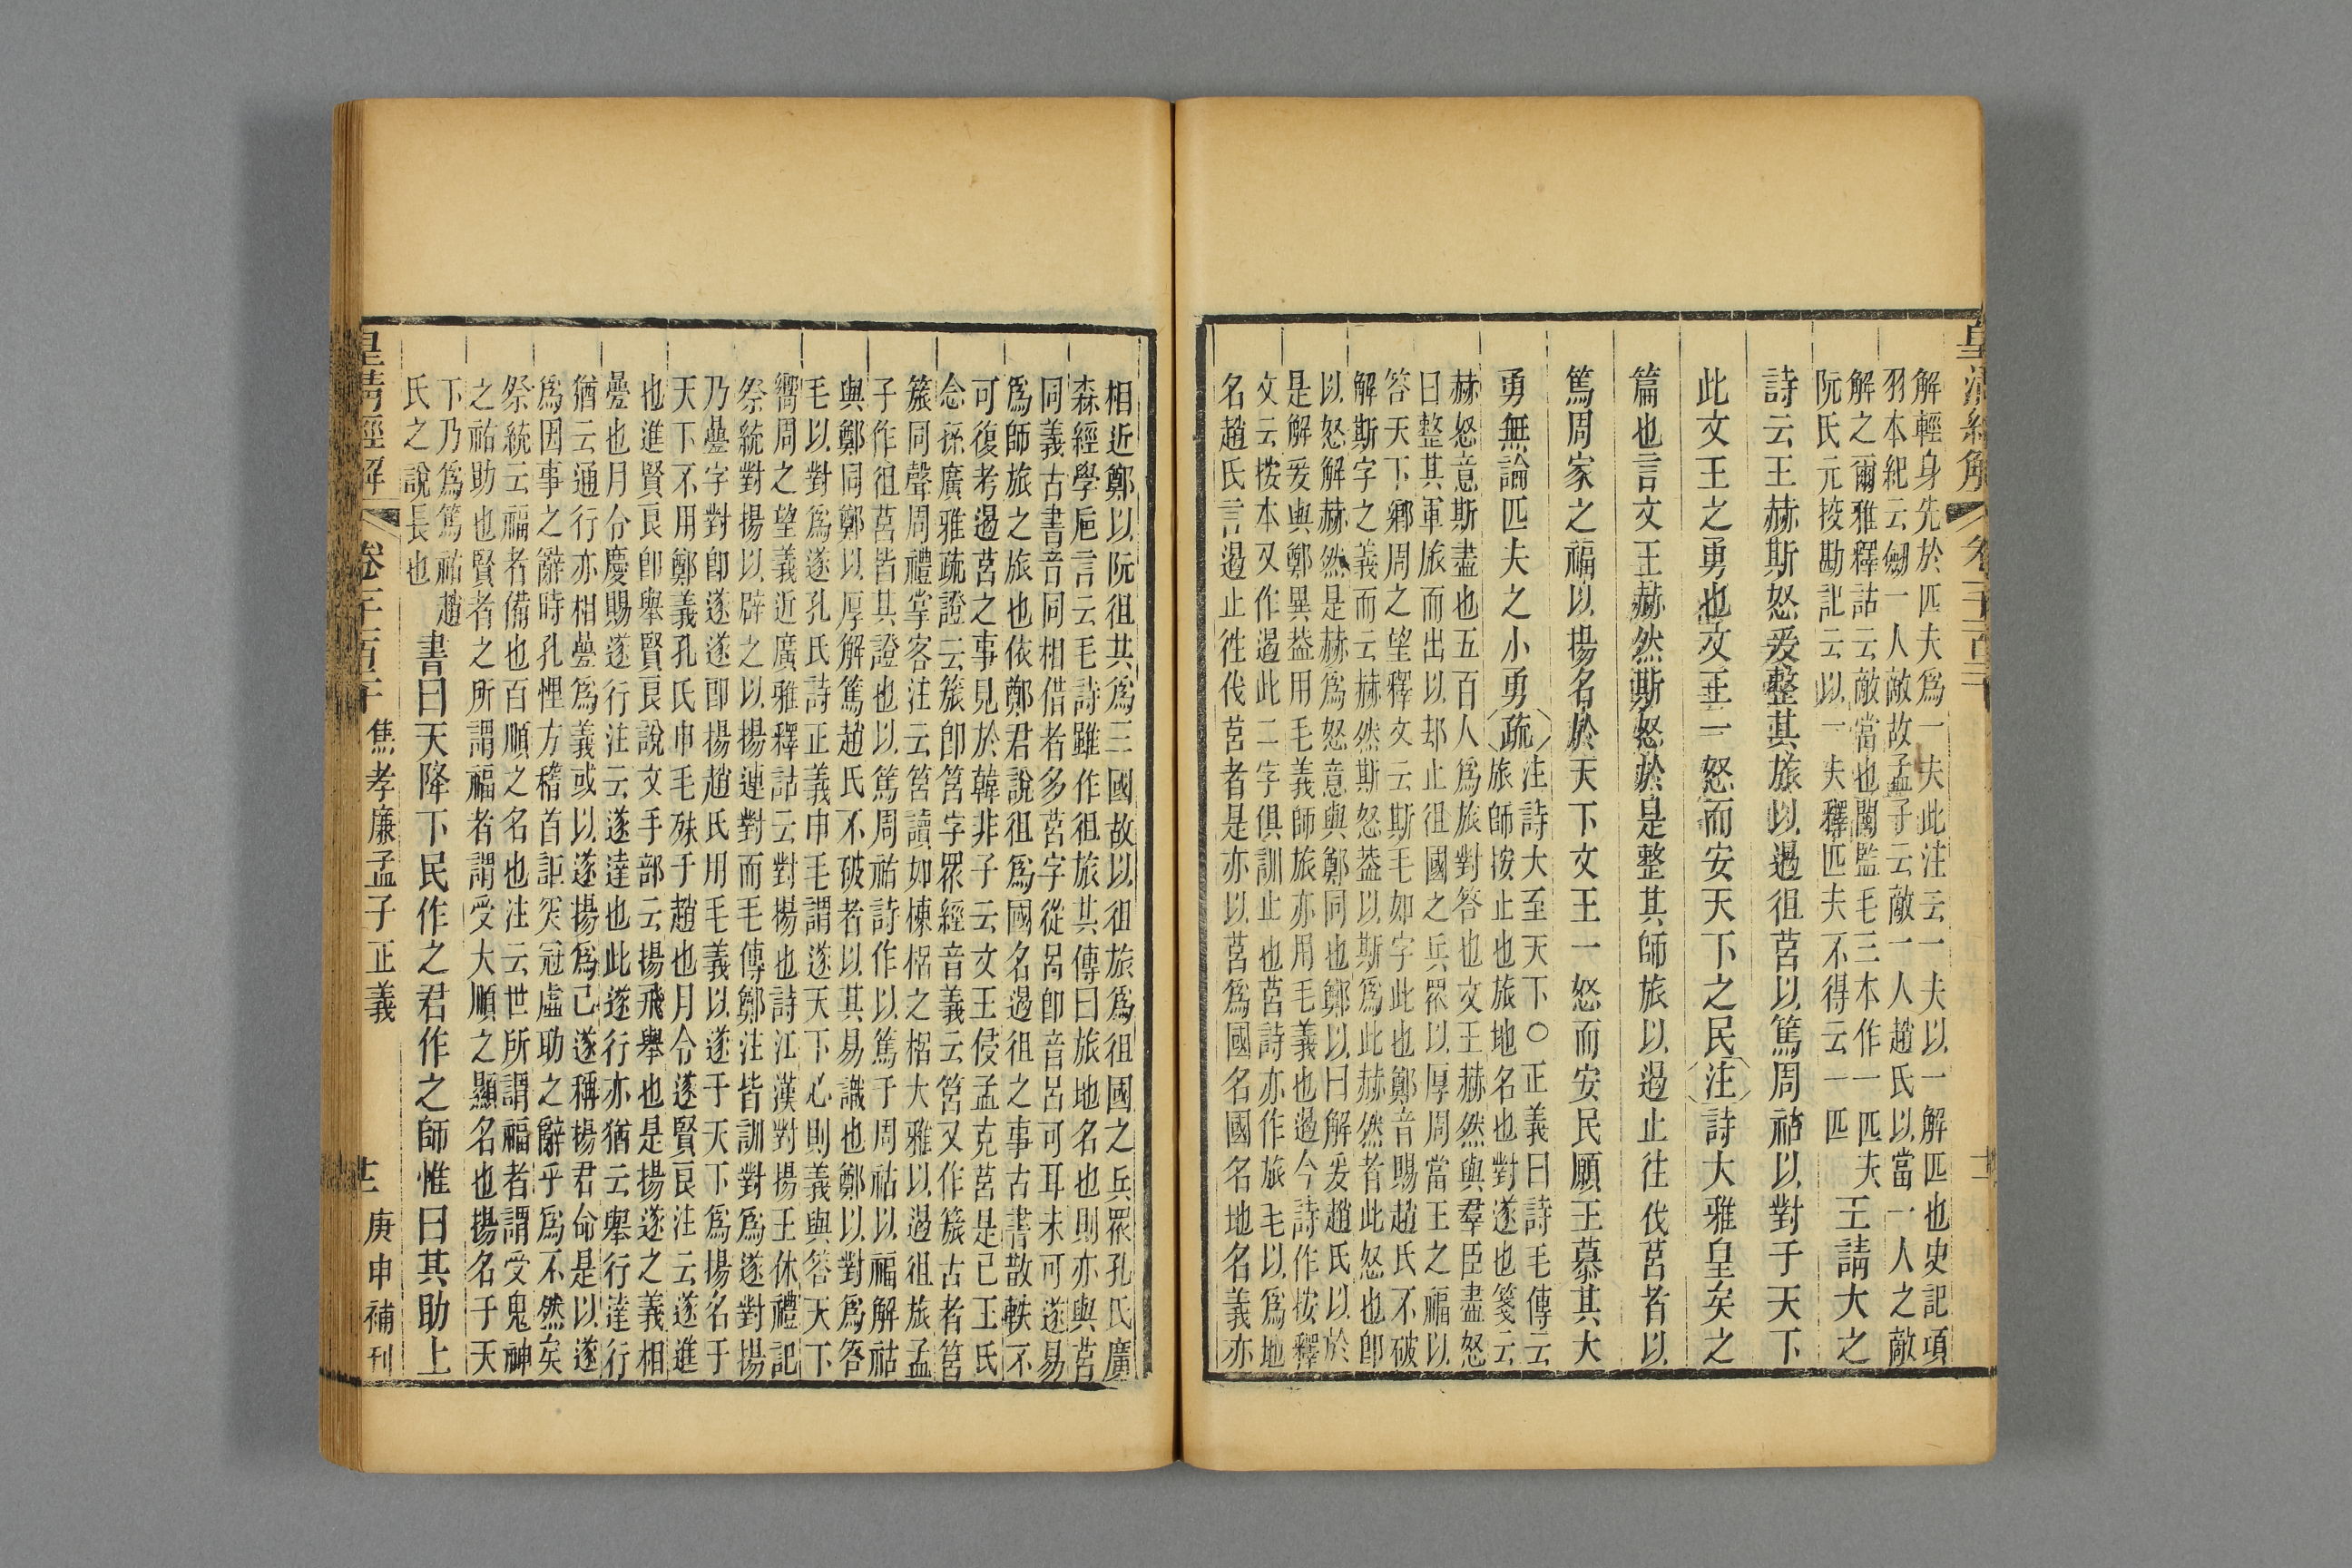 解輕身先於匹夫爲一夫此注云一夫以一解匹也史記項
羽本紀云劒一人敵故孟子云敵一人趙氏以當一人之敵
解之爾雅釋詁云敵當也閩監毛三本作一匹夫
阮氏元挍勘記云以一夫釋匹夫不得云一匹
王請大之
詩云王赫斯怒爰整其旅以遏徂莒以篤周祜以對于天下
此文王之勇也文王一怒而安天下之民注詩大雅皇矣之
篇也言文王赫然斯怒於是整其師旅以遏止往伐莒者以
篤周家之福以揚名於天下文王一怒而安民願王慕其大
勇無論匹夫之小勇疏
注詩大至天下○正義曰詩毛傳云
旅師按止也旅地名也對遂也箋云
赫怒意斯盡也五百人爲旅對答也文王赫然與羣臣盡怒
曰整其軍旅而出以却止徂國之兵眾以厚周當王之福以
答天下鄉周之望釋文云斯毛如字此也鄭音賜趙氏不破
解斯字之義而云赫然斯怒葢以斯爲此赫然者此怒也卽
以怒解赫然是赫爲怒意與鄭同也鄭以曰解爰趙氏以於
是解爰與鄭異葢用毛義師旅亦用毛義也遏今詩作按釋
文云按本又作遏此二字俱訓止也莒詩亦作旅毛以爲地
名趙氏言遏止徃伐莒者是亦以莒爲國名國名地名義亦
相近鄭以阮徂共爲三國故以徂旅爲徂國之兵眾孔氏廣
森經學卮言云毛詩雖作徂旅其傳曰旅地名也則亦與莒
同義古書音同相借者多莒字從呂卽音呂可耳未可遂易
爲師旅之旅也依鄭君說徂爲國名遏徂之事古書散軼不
可復考遏莒之事見於韓非子云文王侵孟克莒是已王氏
念孫廣雅疏證云簇卽筥字眾經音義云筥又作簇古者筥
簇同聲周禮掌客注云筥讀如棟梠之梠大雅以遏徂旅孟
子作徂莒皆其證也以篤周祜詩作以篤于周祜以福解祜
與鄭同鄭以厚解篤趙氏不破者以其易識也鄭以對爲答
毛以對爲遂孔氏詩正義申毛謂遂天下心則義與答天下
嚮周之望義近廣雅釋詁云對揚也詩江漢對揚王休禮記
祭統對揚以辟之以揚連對而毛傳鄭注皆訓對爲遂對揚
乃疊字對卽遂遂卽揚趙氏用毛義以遂于天下爲揚名于
天下不用鄭義孔氏申毛殊于趙也月令遂賢良注云遂進
也進賢良卽舉賢良說文手部云揚飛舉也是揚遂之義相
疊也月令慶賜遂行注云遂達也此遂行亦猶云舉行達行
猶云通行亦相疊爲義或以遂揚爲己遂稱揚君命是以遂
爲因事之辭時孔悝方稽首詎突冠虛助之辭乎爲不然矣
祭統云福者備也百順之名也注云世所謂福者謂受鬼神
之祐助也賢者之所謂福者謂受大順之顯名也揚名于天
下乃爲篤祜趙
氏之說長也
書曰天降下民作之君作之師惟曰其助上
皇清經解
卷三百
焦孝廉孟子正義
庚申補刊